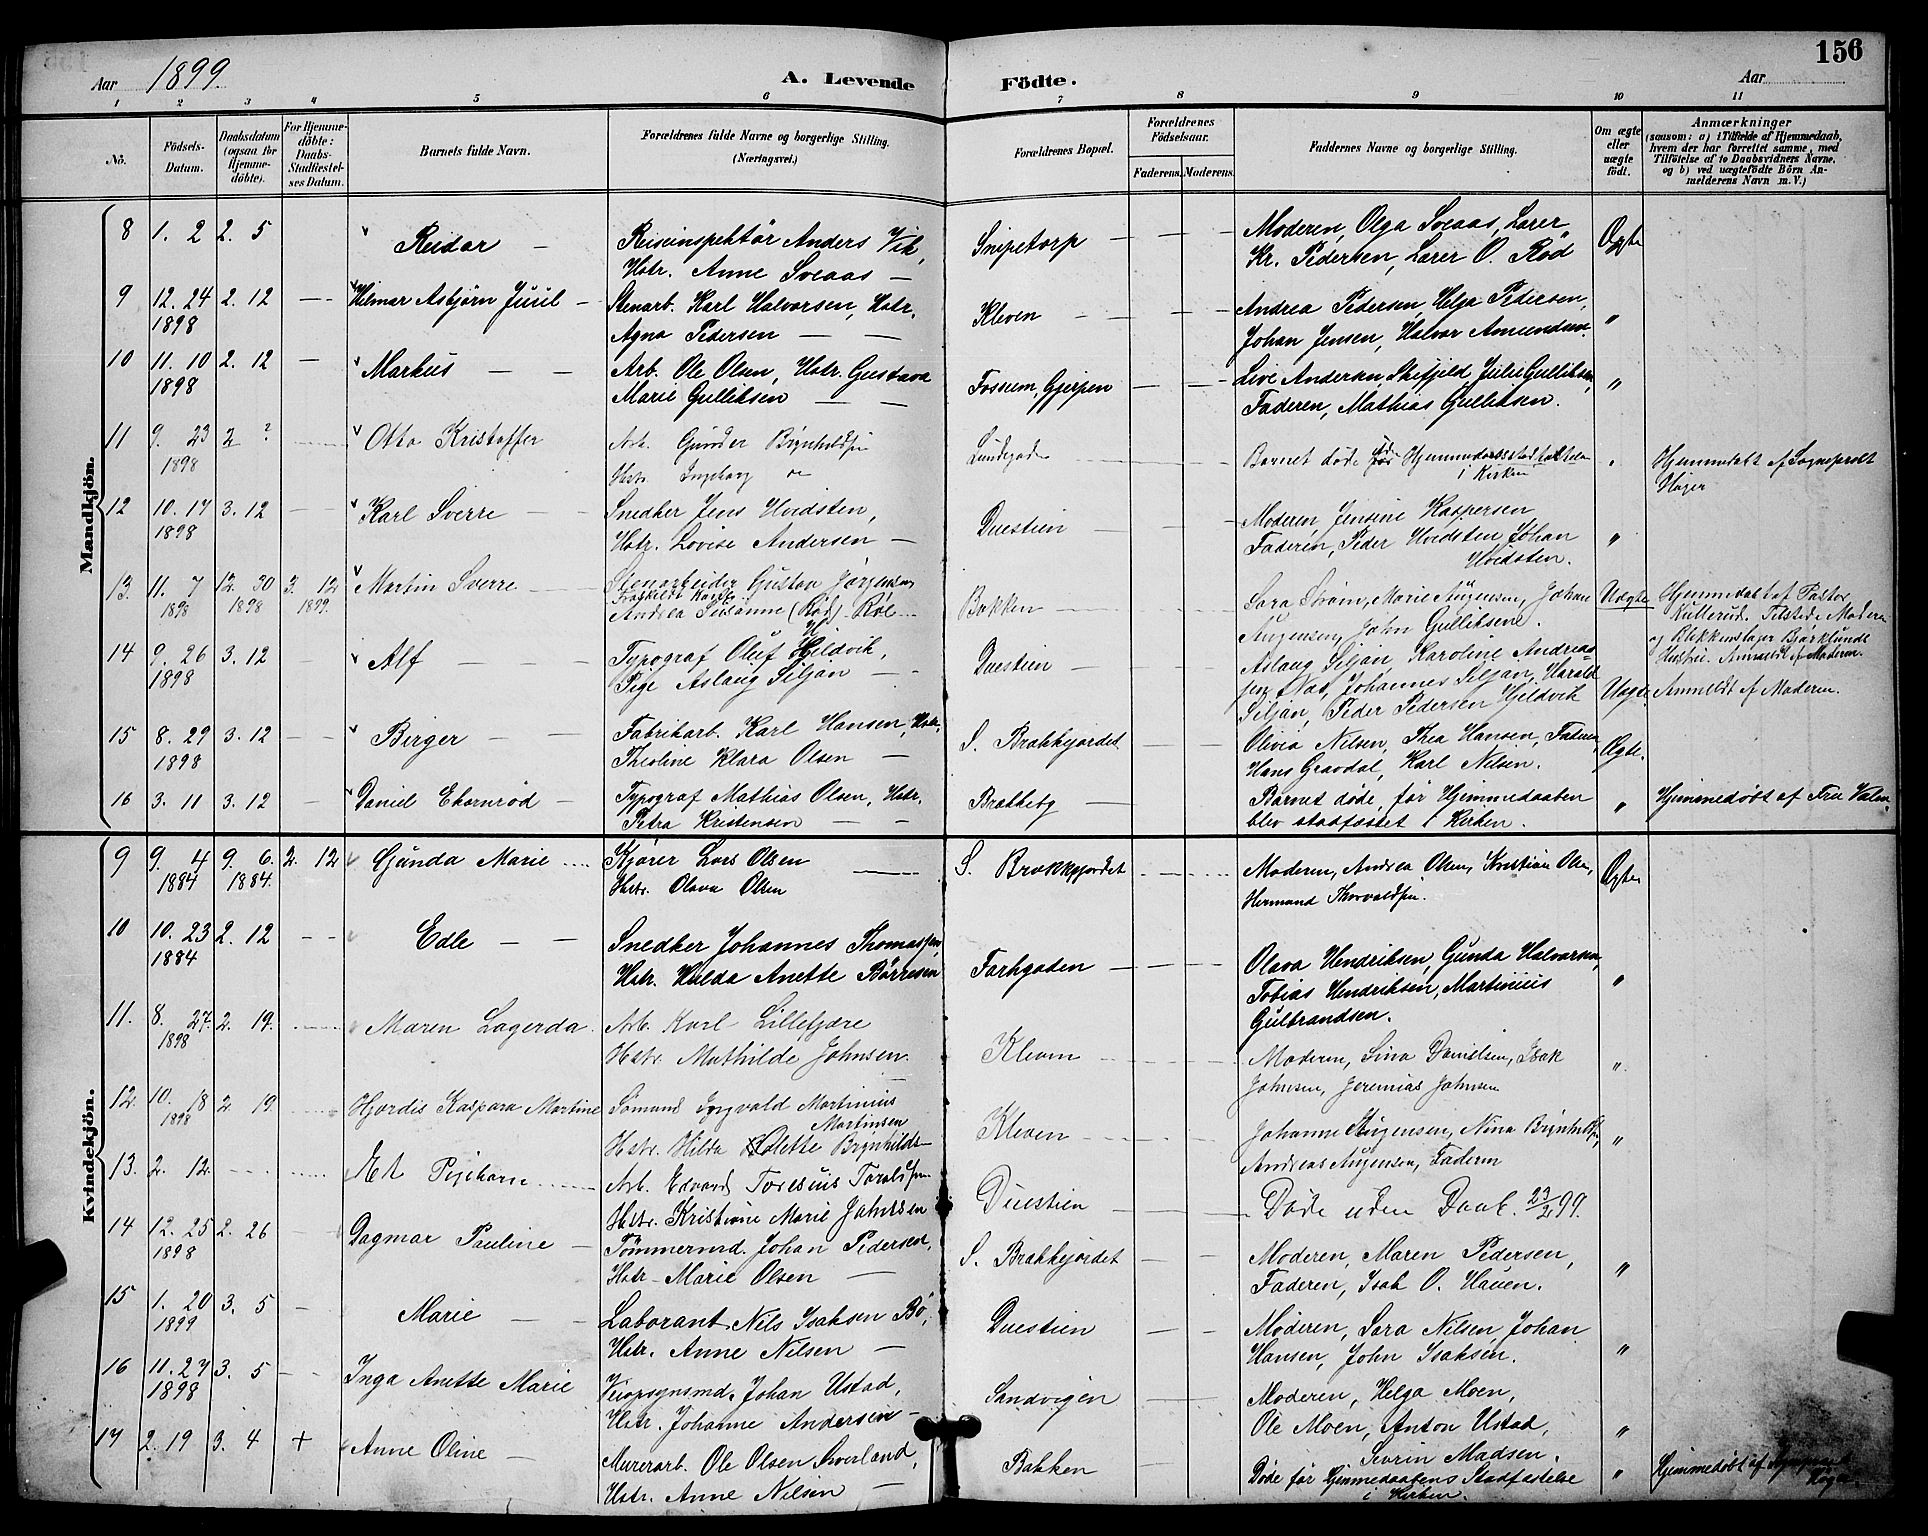 156
Aar 1899. A. Levende Födte. Aar
1 2 3 4 5 6 7 8 9 10 11
No.
Födsels-Datum.
Daabsdatum (ogsaa for Hjemme-döbte).
For Hjemme-döbte: Daabs-Stadfæstel-ses Datum.
Barnets fulde Navn.
Forældrenes fulde Navne og borgerlige Stilling.
(Næringsvei.)
Forældrenes Bopæl.
Forældrenes Födselsaar.
Faderens. Moderens.
Faddernes Navne og borgerlige Stilling.
Om ægte eller uægte födt.
Anmærkninger
(saasom: a) i Tilfælde af Hjemmedaab, hvem der har forrettet samme, med Tilföielse af to Daabsvidners Navne, og b) ved uægtefödte Börn An-melderens Navn m. V.)
Mandkjön.
8 1. 2 2. 5 Reidar — Reiseinspektör Anders Vik, Snipetorp — — — Moderen, Olga Sveaas, Lærer Ægte
Hstr. Anne Sveaas — Kr. Pedersen, Lærer O. Rød
9 12. 24 2. 12 — Hilmar Asbjørn Juul — Stenarb. Karl Halvorsen, Hstr. Kleven — — — Andrea Pedersen, Helga Pedersen, "
1898 Agna Pedersen — — Johan Jensen, Halvor Amundsen.
10 11. 10 2. 12 — Markus — — Arb. Ole Olsen, Hstr. Gustava Fossum, Gjerpen — — — Live Andersen Skifjeld, Julie Gulliksen, "
1898 Marie Gulliksen — — Faderen, Mathias Gulliksen.
11 9. 23 2 ? Otto Kristoffer Arb. Gunder Brynhildsen Lundegade Barnet døde før Hjemmedaabsstadfæstelsen " Hjemmedøbt af Sogneprest
1898 Hstr. Ingeborg i Kirken Høyer
12 10. 17 3. 12 — Karl Sverre — Snedker Jens Hvidsten, Duestien — — Moderen, Jensine Kaspersen
1898 Hstr. Lovise Andersen — Faderen, Peder Hvidsten, Johan "
Hvidsten.
13. 11. 7 12. 30 3. 12 Martin Sverre — Stenarbeider Gustav Jørgensen Bakken Sara Strøm, Marie Jürgensen, Johan Uægte Hjemmedøbt af Pastor
1898 1898 1899. Fraskildt Kone Andrea Susanne (Rød) Røe Jürgensen, John Gulliksen. Kullerud. Tilstede Moderen
og Blikkenslager Bjørklunds
Hustru. Anmeldt af Moderen.
14 9. 26 3. 12 Alf — — — Typograf Oluf Hjeldvik, Duestien — Aslaug Siljan, Karoline Andreas-
1898 Pige Aslaug Siljan — — sen Næs, Johannes Siljan, Harald Uægte Anmeldt af Moderen.
Siljan, Peder Pedersen Hjeldvik
15 8. 29 3. 12 — Birger — — Fabrikarb. Karl Hansen, Hstr. S. Brækkejordet Olivia Nilsen, Thea Hansen, Faderen, Ægte.
1898 Theoline Klara Olsen — Hans Gravdal, Karl Nilsen.
16 3. 11 3. 12 — Daniel Ekornrød — Typograf Mathias Olsen, Hstr. Brækkeby — Barnet døde, før Hjemmedaaben " Hjemmedøbt af Fru
Petra Kristensen — — blev stadfæstet i Kirken.
Kvindekjön.
9 9. 4 9. 6. 2. 12 Gunda Marie Kjører Lars Olsen S. Brækkejordet Moderen, Andrea Olsen, Kristian Olsen, Ægte
1884 1884. Hstr. Olava Olsen Hermand Thorvaldsen.
10 10. 23 2. 12 — Edle — — Snedker Johannes Thomassen,
1884 Hstr. Hulda Anette Børresen Farhgaden — — Olava Hendriksen, Gunda Halvorsen, "
Tobias Hendriksen, Martinius
Gulbrandsen.
11. 8. 27. 2. 19. Maren Lagerda. Arb. Karl Lillefjære
1898 Hstr. Mathilde Johnsen. Kleven Moderen, Sina Danielsen, Isak "
Johnsen, Jeremias Johnsen
12. 10. 18 2. 19. Hjørdis Kaspara Martine Sømand Ingvald Martinius
1898 Martinsen Kleven Johanne Jürgensen, Nina Brynhildsen, "
Hstr. Hilda Odette Brynhilds- Andreas Jürgensen, Faderen
13. 2. 12. Et Pigebarn Arb. Edvard Toresius Taraldsen Duestien Døde uden Daab. 23/2 99.
Hstr. Kristiane Marie Johnsen
14 12. 25 2. 26 Dagmar Pauline — Tømmermd. Johan Pedersen, S. Brækkejordet — Moderen, Maren Pedersen, "
1898 Hstr. Marie Olsen — Faderen, Isak O. Hauen.
15 1. 20 3. 5 — Marie — — Laborant Nils Isaksen Bø, Duestien — — Moderen, Sara Nilsen, Johan "
1899 Hstr. Anne Nilsen — Hansen, John Isaksen.
16 11. 27 3. 5 — Inga Anette Marie Veiopsynsmd. Johan Ustad, Sandvigen — Moderen, Helga Moen, "
1898 Hstr. Johanne Andersen — Ole Moen, Anton Ustad,
Sevrin Madsen.
17 2. 19 3. 4 + Anne Oline — Murerarb. Ole Olsen Sverland, Bakken — Døde før Hjemmedaabens Stadfæstelse " Hjemmedøbt af Sogneprest
Hstr. Anne Nilsen — i Kirken.